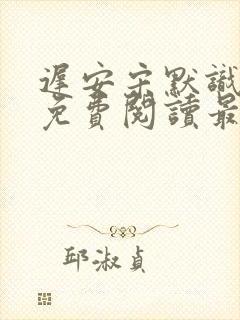 遲安宋默識
免費閱讀最
邱淑貞